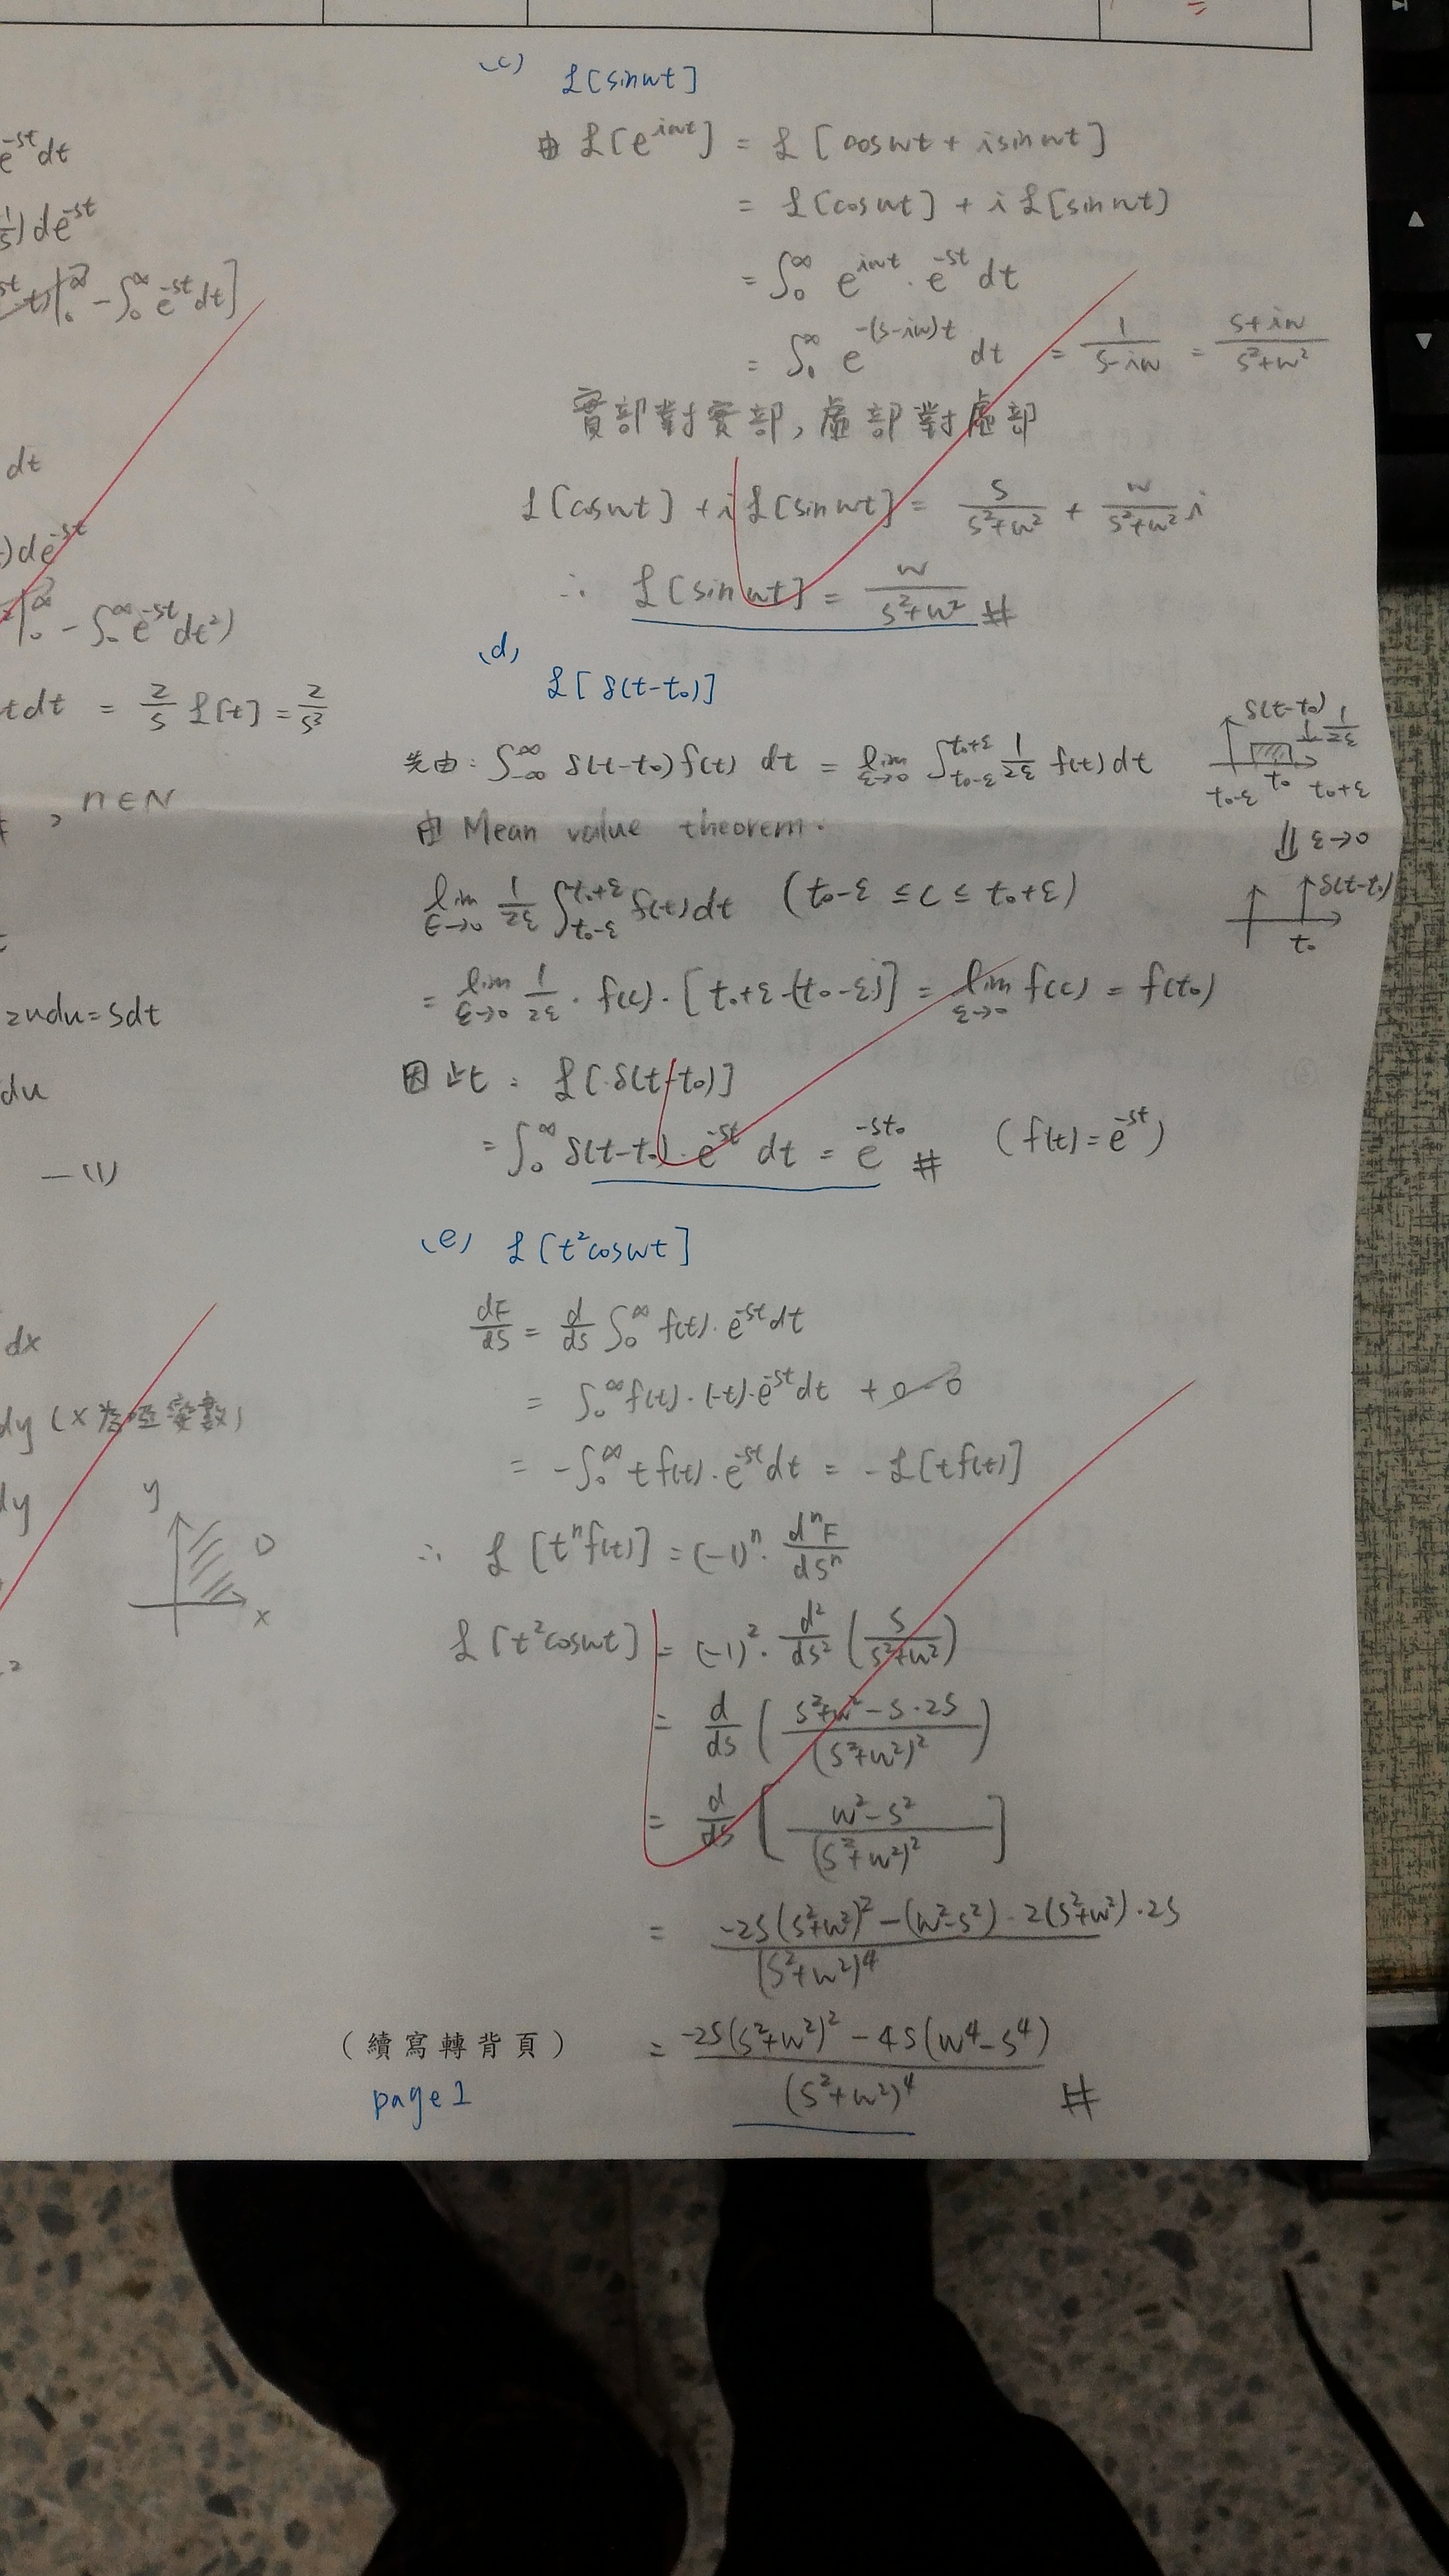 e^{-st}dt
1/s) de^{-st}
-∫₀^∞ e^{-st}dt]
dt
) de^{-st}
|₀^∞ - ∫₀^∞ e^{-st}dt²)
tdt = 2/s ℒ[t] = 2/s³
, n∈N
2udu=sdt
du
—(1)
dx
dy (x為啞變數)
dy
y
D
x
2
(c)
ℒ[sinwt]
由 ℒ[e^{iwt}] = ℒ[coswt + isinwt]
= ℒ[coswt] + iℒ[sinwt]
= ∫₀^∞ e^{iwt}·e^{-st} dt
= ∫₀^∞ e^{-(s-iw)t} dt = 1/(s-iw) = (s+iw)/(s²+w²)
實部對實部,虛部對虛部
ℒ[coswt] + iℒ[sinwt] = s/(s²+w²) + w/(s²+w²) i
∴ ℒ[sinwt] = w/(s²+w²) #
(d)
ℒ[δ(t-t₀)]
先由: ∫_{-∞}^∞ δ(t-t₀)f(t) dt = lim_{ε→0} ∫_{t₀-ε}^{t₀+ε} 1/2ε f(t)dt
δ(t-t₀) ↓ 1/2ε
t₀-ε t₀ t₀+ε
⇓ ε→0
δ(t-t₀)
t₀
由 Mean value theorem.
lim_{ε→0} 1/2ε ∫_{t₀-ε}^{t₀+ε} f(t)dt (t₀-ε ≤ c ≤ t₀+ε)
= lim_{ε→0} 1/2ε · f(c)·[t₀+ε-(t₀-ε)] = lim_{ε→0} f(c) = f(t₀)
因此: ℒ[δ(t-t₀)]
= ∫₀^∞ δ(t-t₀)·e^{-st} dt = e^{-st₀} # (f(t)=e^{-st})
(e) ℒ[t²coswt]
dF/ds = d/ds ∫₀^∞ f(t)·e^{-st}dt
= ∫₀^∞ f(t)·(-t)·e^{-st}dt + 0-0
= -∫₀^∞ tf(t)·e^{-st}dt = -ℒ[tf(t)]
∴ ℒ[tⁿf(t)] = (-1)ⁿ· dⁿF/dsⁿ
ℒ[t²coswt] = (-1)²· d²/ds² (s/(s²+w²))
= d/ds ((s²+w²-s·2s)/(s²+w²)²)
= d/ds [(w²-s²)/(s²+w²)²]
= (-2s(s²+w²)²-(w²-s²)·2(s²+w²)·2s)/(s²+w²)⁴
= (-2s(s²+w²)²-4s(w⁴-s⁴))/(s²+w²)⁴ #
(續寫轉背頁)
page 1